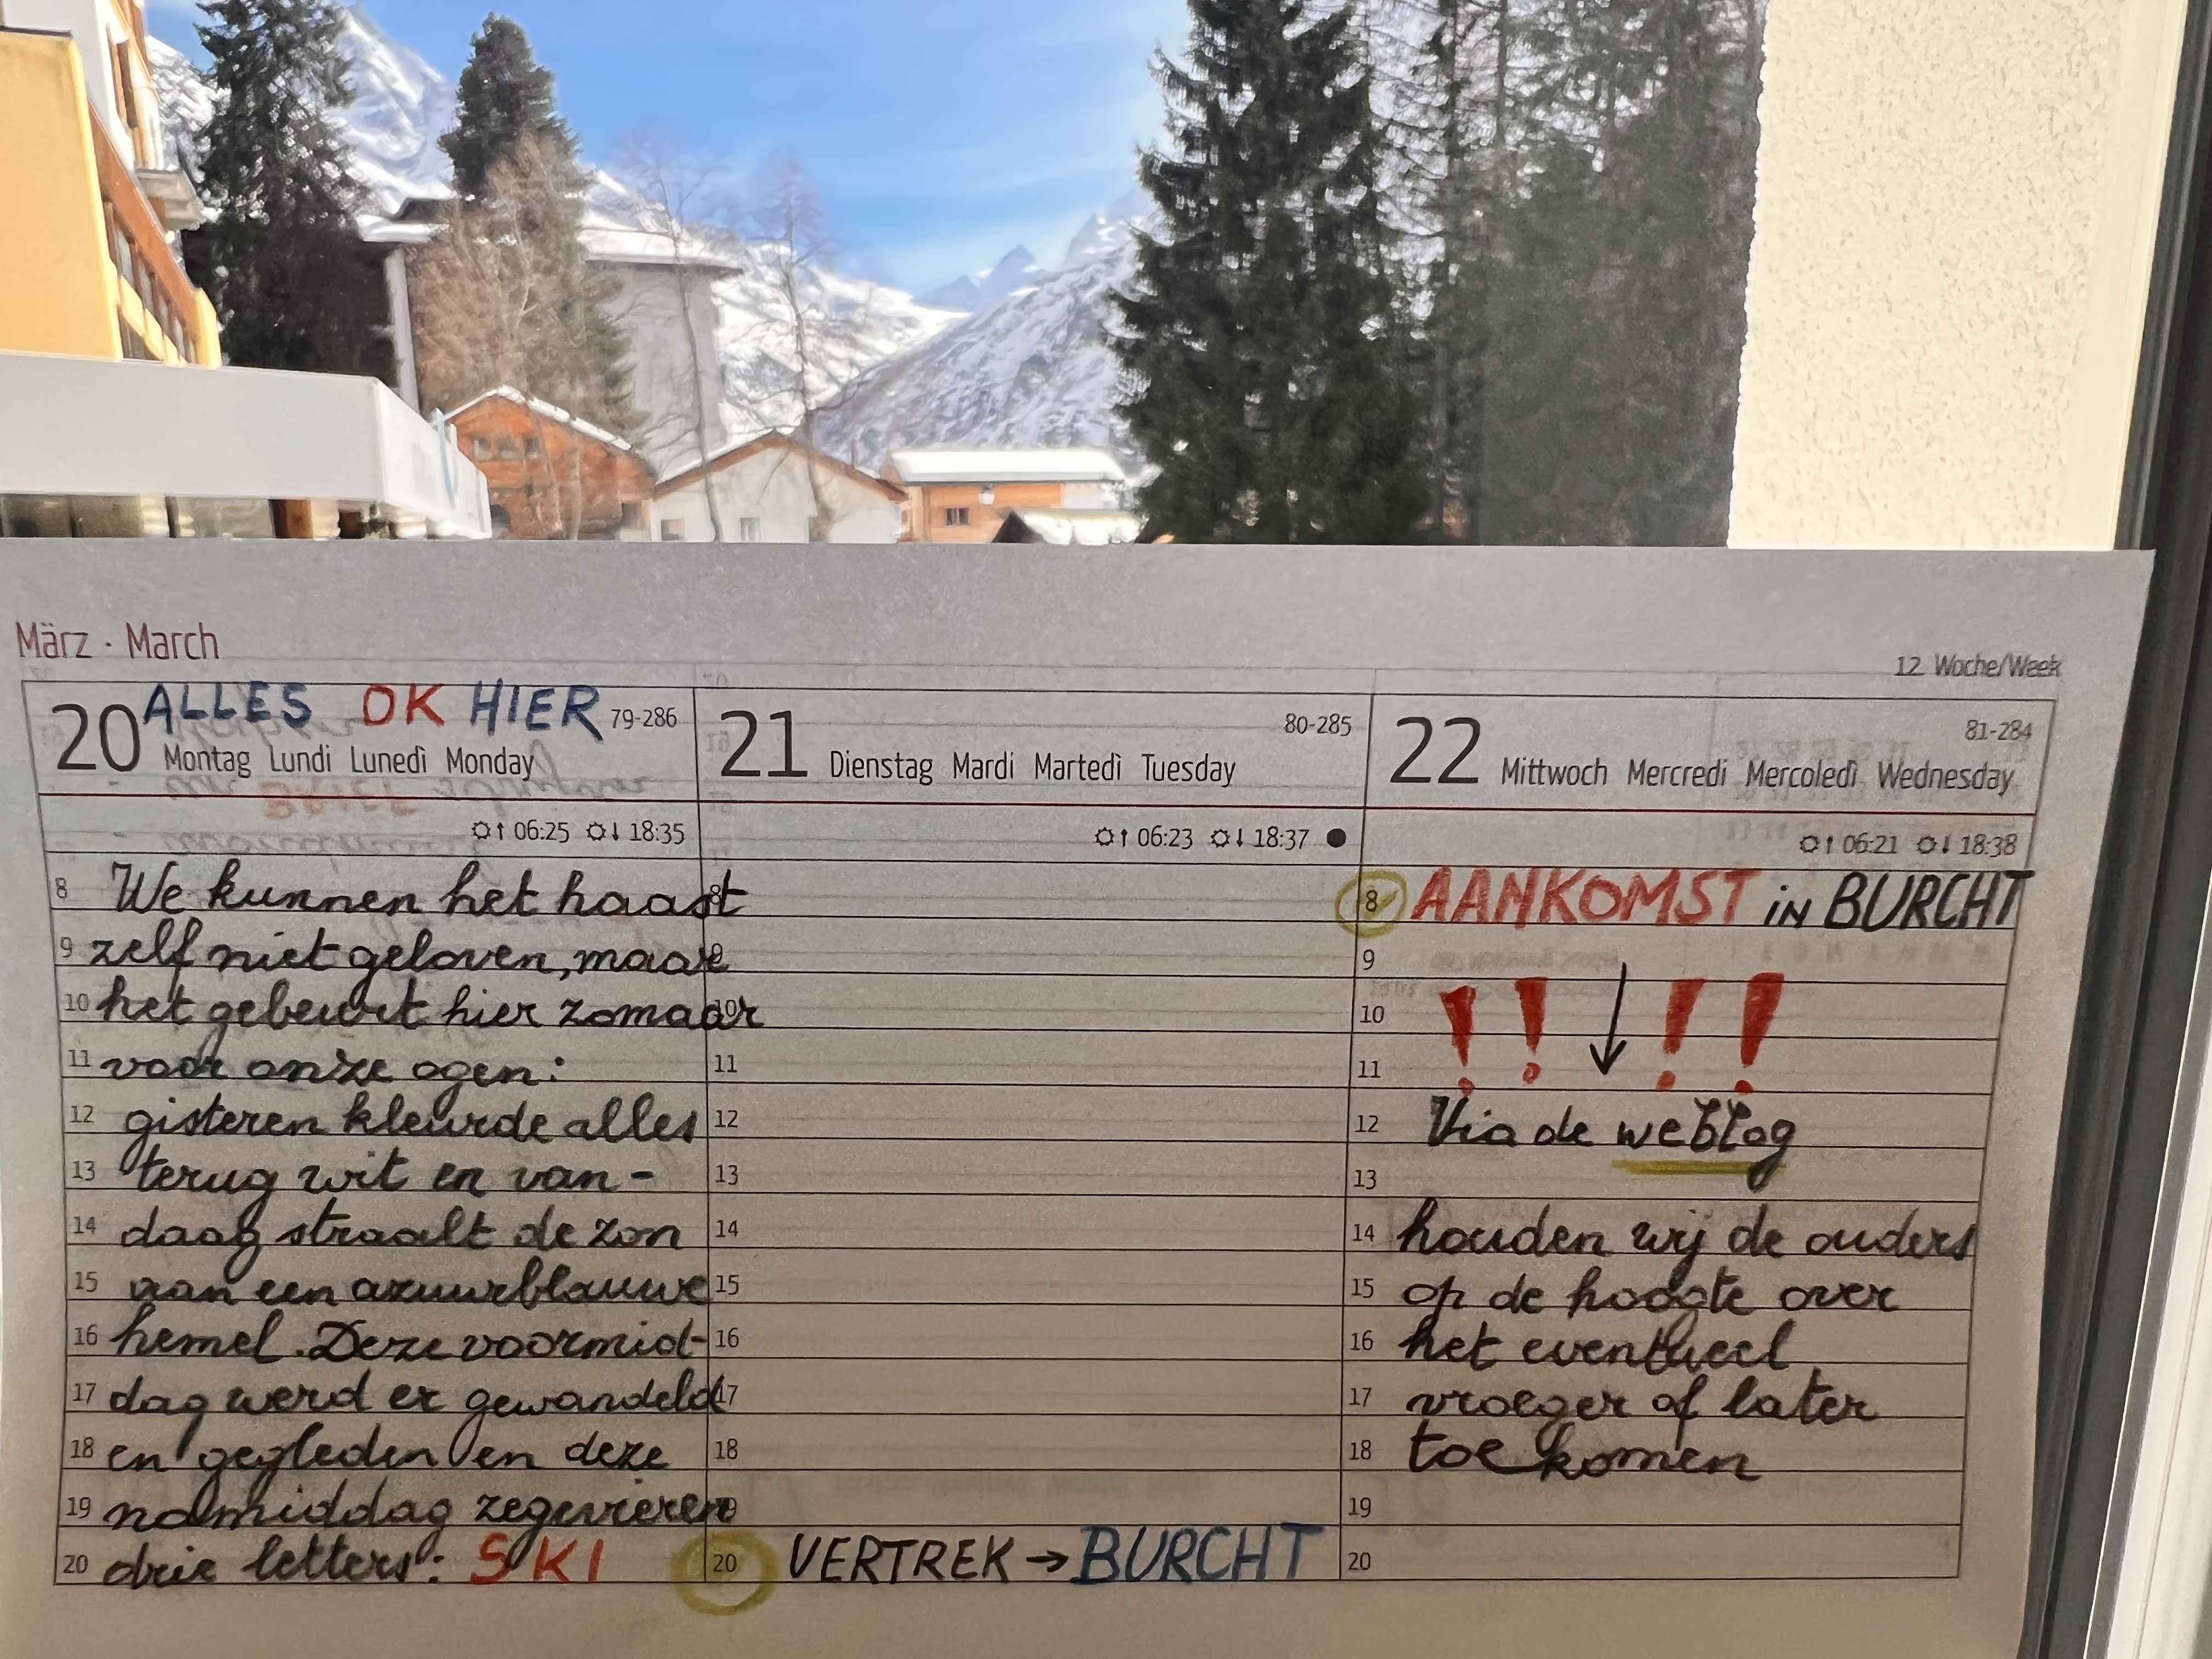 März · March
12. Woche/Week
ALLES OK HIER
20 79-286
Montag Lundi Lunedì Monday
06:25 18:35
8 We kunnen het haast
9 zelf niet geloven, maar
10 het gebeurt hier zomaar
11 voor onze ogen:
12 gisteren kleurde alles
13 terug wit en van-
14 daag straalt de zon
15 aan een azuurblauwe
16 hemel. Deze voormid-
17 dag werd er gewandeld
18 en gegleden en deze
19 namiddag zegevieren
20 drie letters: SKI
21 80-285
Dienstag Mardi Martedì Tuesday
06:23 18:37
8
9
10
11
12
13
14
15
16
17
18
19
20 VERTREK → BURCHT
22 81-284
Mittwoch Mercredi Mercoledì Wednesday
06:21 18:38
8 AANKOMST in BURCHT
9
10 ! ! ↓ ! !
11
12 Via de weblog
13
14 houden wij de ouders
15 op de hoogte over
16 het eventueel
17 vroeger of later
18 toe komen
19
20